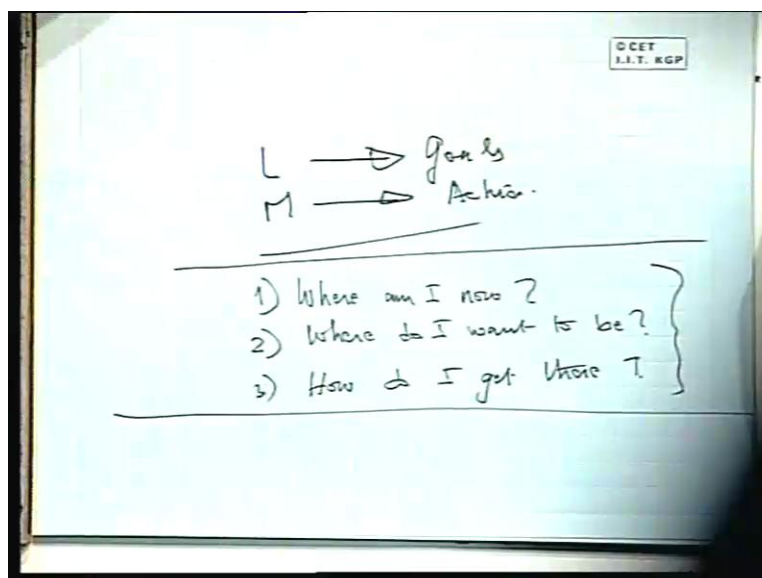 © CET
I.I.T. KGP
L → Goals
M → Achie.
1) Where am I now?
2) Where do I want to be?
3) How do I get there?